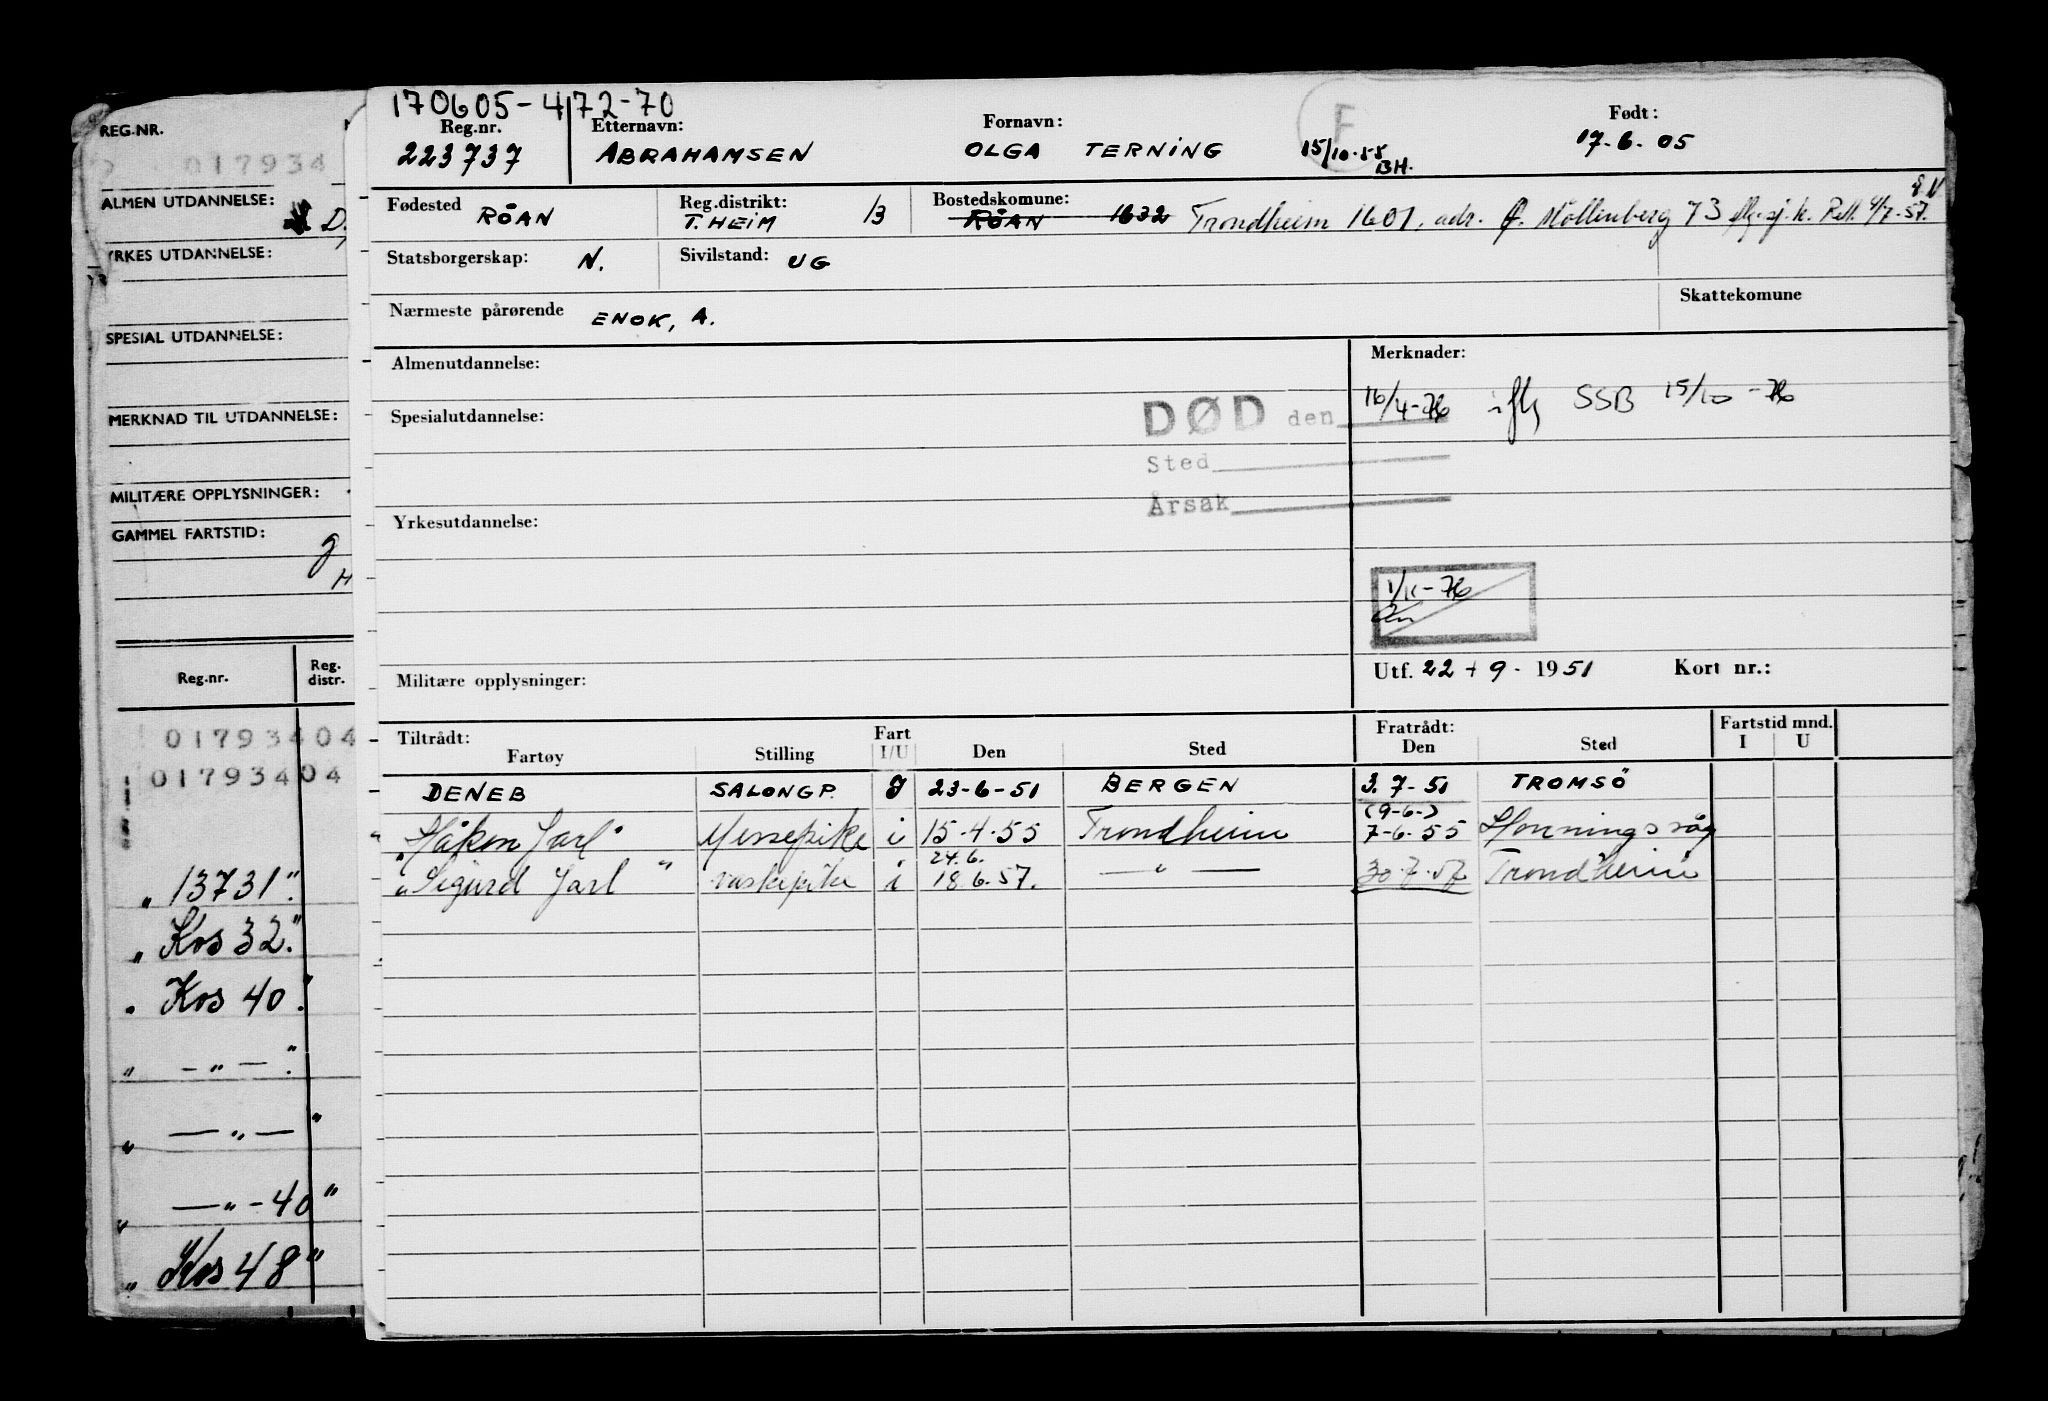 REG.NR.
017934
ALMEN UTDANNELSE:
D.
YRKES UTDANNELSE:
SPESIAL UTDANNELSE:
MERKNAD TIL UTDANNELSE:
MILITÆRE OPPLYSNINGER:
GAMMEL FARTSTID:
g
H
Reg.nr. Reg. distr.
01793404
01793404
„ 13731".
„ Kos 32."
„ Kos 40."
„ - „ - ."
„ — „ — "
„ — „ - 40"
„ Kos 48"
170605-472-70
Reg.nr. Etternavn: Fornavn: F Født:
223737 ABRAHAMSEN OLGA TERNING 15/10-55 BH. 17-6-05
Fødested RÖAN Reg.distrikt: T.HEIM 13 Bostedskomune: RÖAN 1632 Trondheim 1601. adr. Ø. Møllenberg 73 sj.k. 4/7-57.
Statsborgerskap: N. Sivilstand: UG
Nærmeste pårørende ENOK, A. Skattekomune
Almenutdannelse: Merknader:
DØD den 16/4-76 SSB 15/10-76
Spesialutdannelse:
Sted
Årsak
Yrkesutdannelse:
1/11-76
Militære opplysninger: Utf. 22-9-1951 Kort nr.:
Tiltrådt: Fart Fratrådt: Fartstid mnd.
Fartøy Stilling I/U Den Sted Den Sted I U
DENEB SALONGP. I 23-6-51 BERGEN 3.7-51 TROMSÖ
(9-6-)
„ "Håkon Jarl" Messepike i 15-4-55 Trondheim 7-6-55 Honningsvåg
24.6.
„ Sigurd Jarl " vaskepike i 18.6.57. — " — 30.7.57 Trondheim